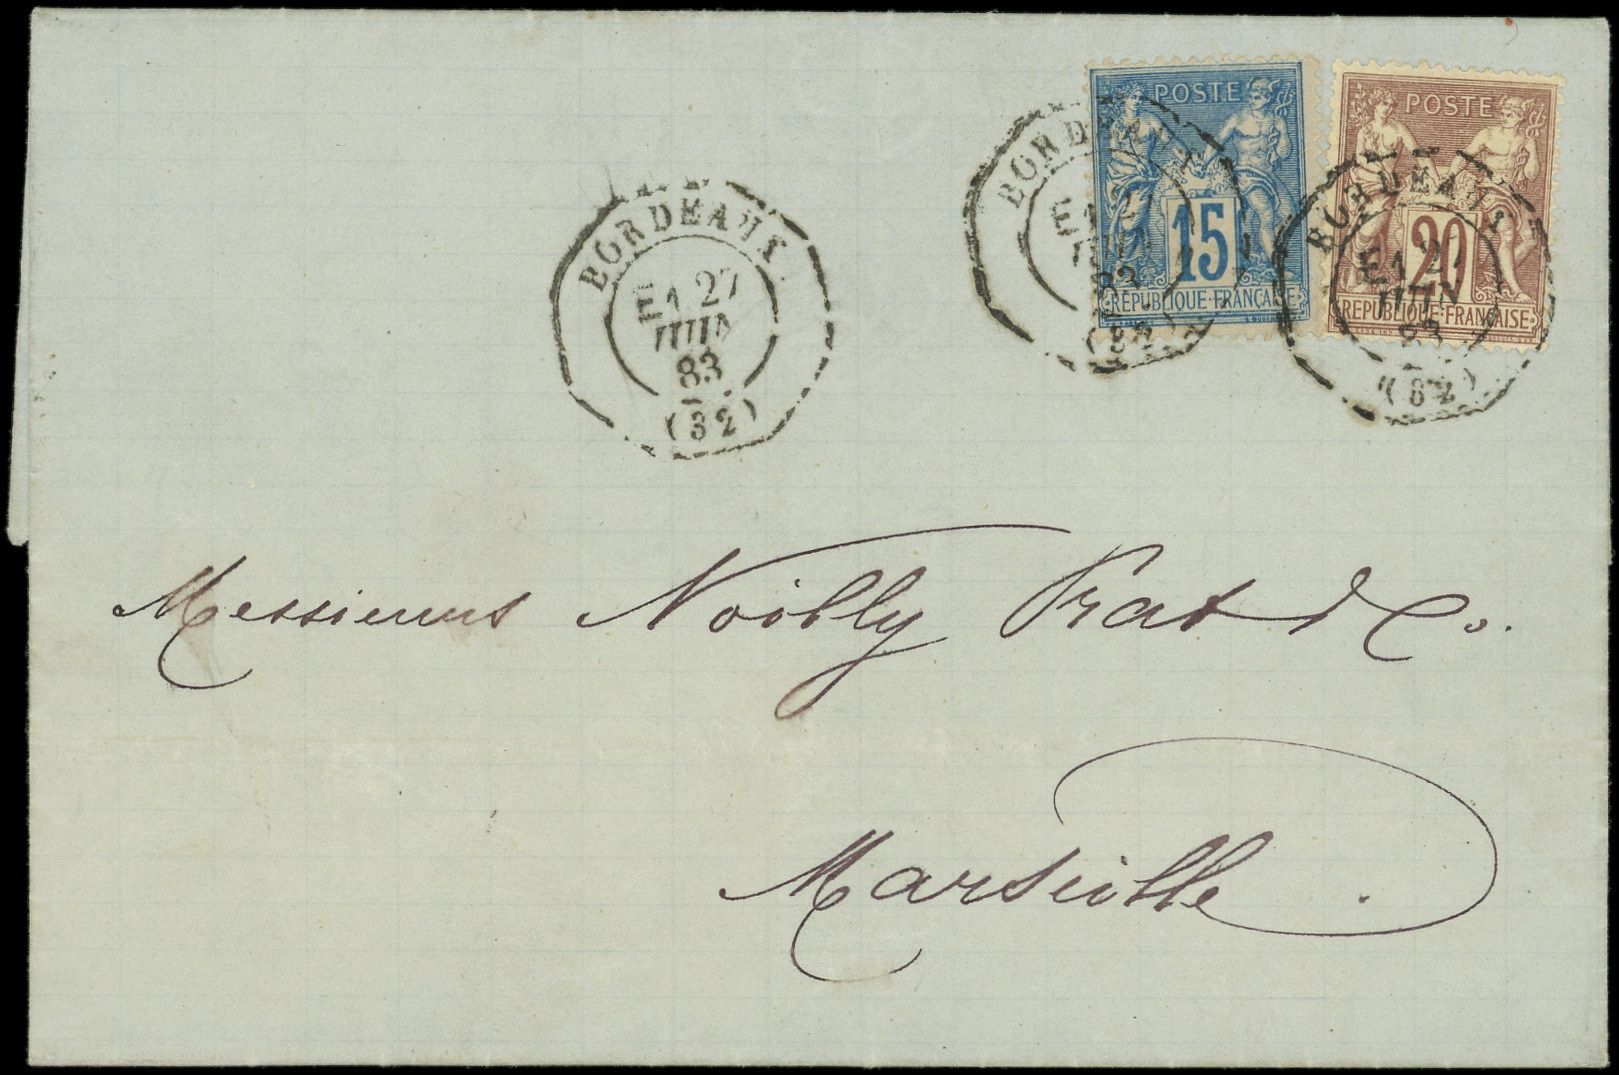 POSTE
15
REPUBLIQUE·FRANÇAISE
POSTE
20
REPUBLIQUE·FRANÇAISE
BORDEAUX
E1 27
JUIN
83
(32)
BORDEAUX
E1 2
83
BORDEAUX
E1 27
JUIN
83
(32)
Messieurs Noilly Prat & Co.
Marseille.